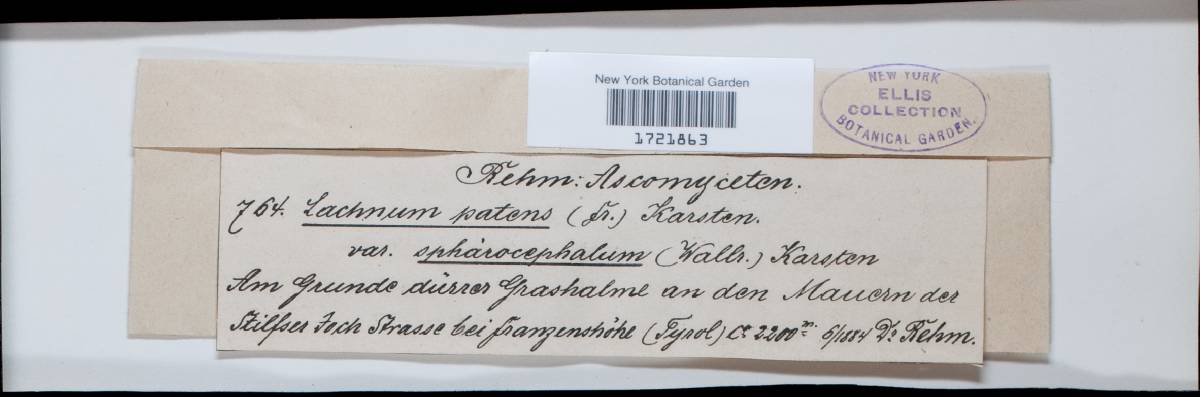 New York Botanical Garden
1721863
NEW YORK
ELLIS
COLLECTION
BOTANICAL GARDEN.
Rehm: Ascomyceten.
764. Lachnum patens (Fr.) Karsten.
var. sphärocephalum (Wallr.) Karsten
Am Grunde dürrer Grashalme an den Mauern der
Stilfser Joch Strasse bei Franzenshöhe (Tyrol) ca 2200 m. 6/1884 Dr Rehm.